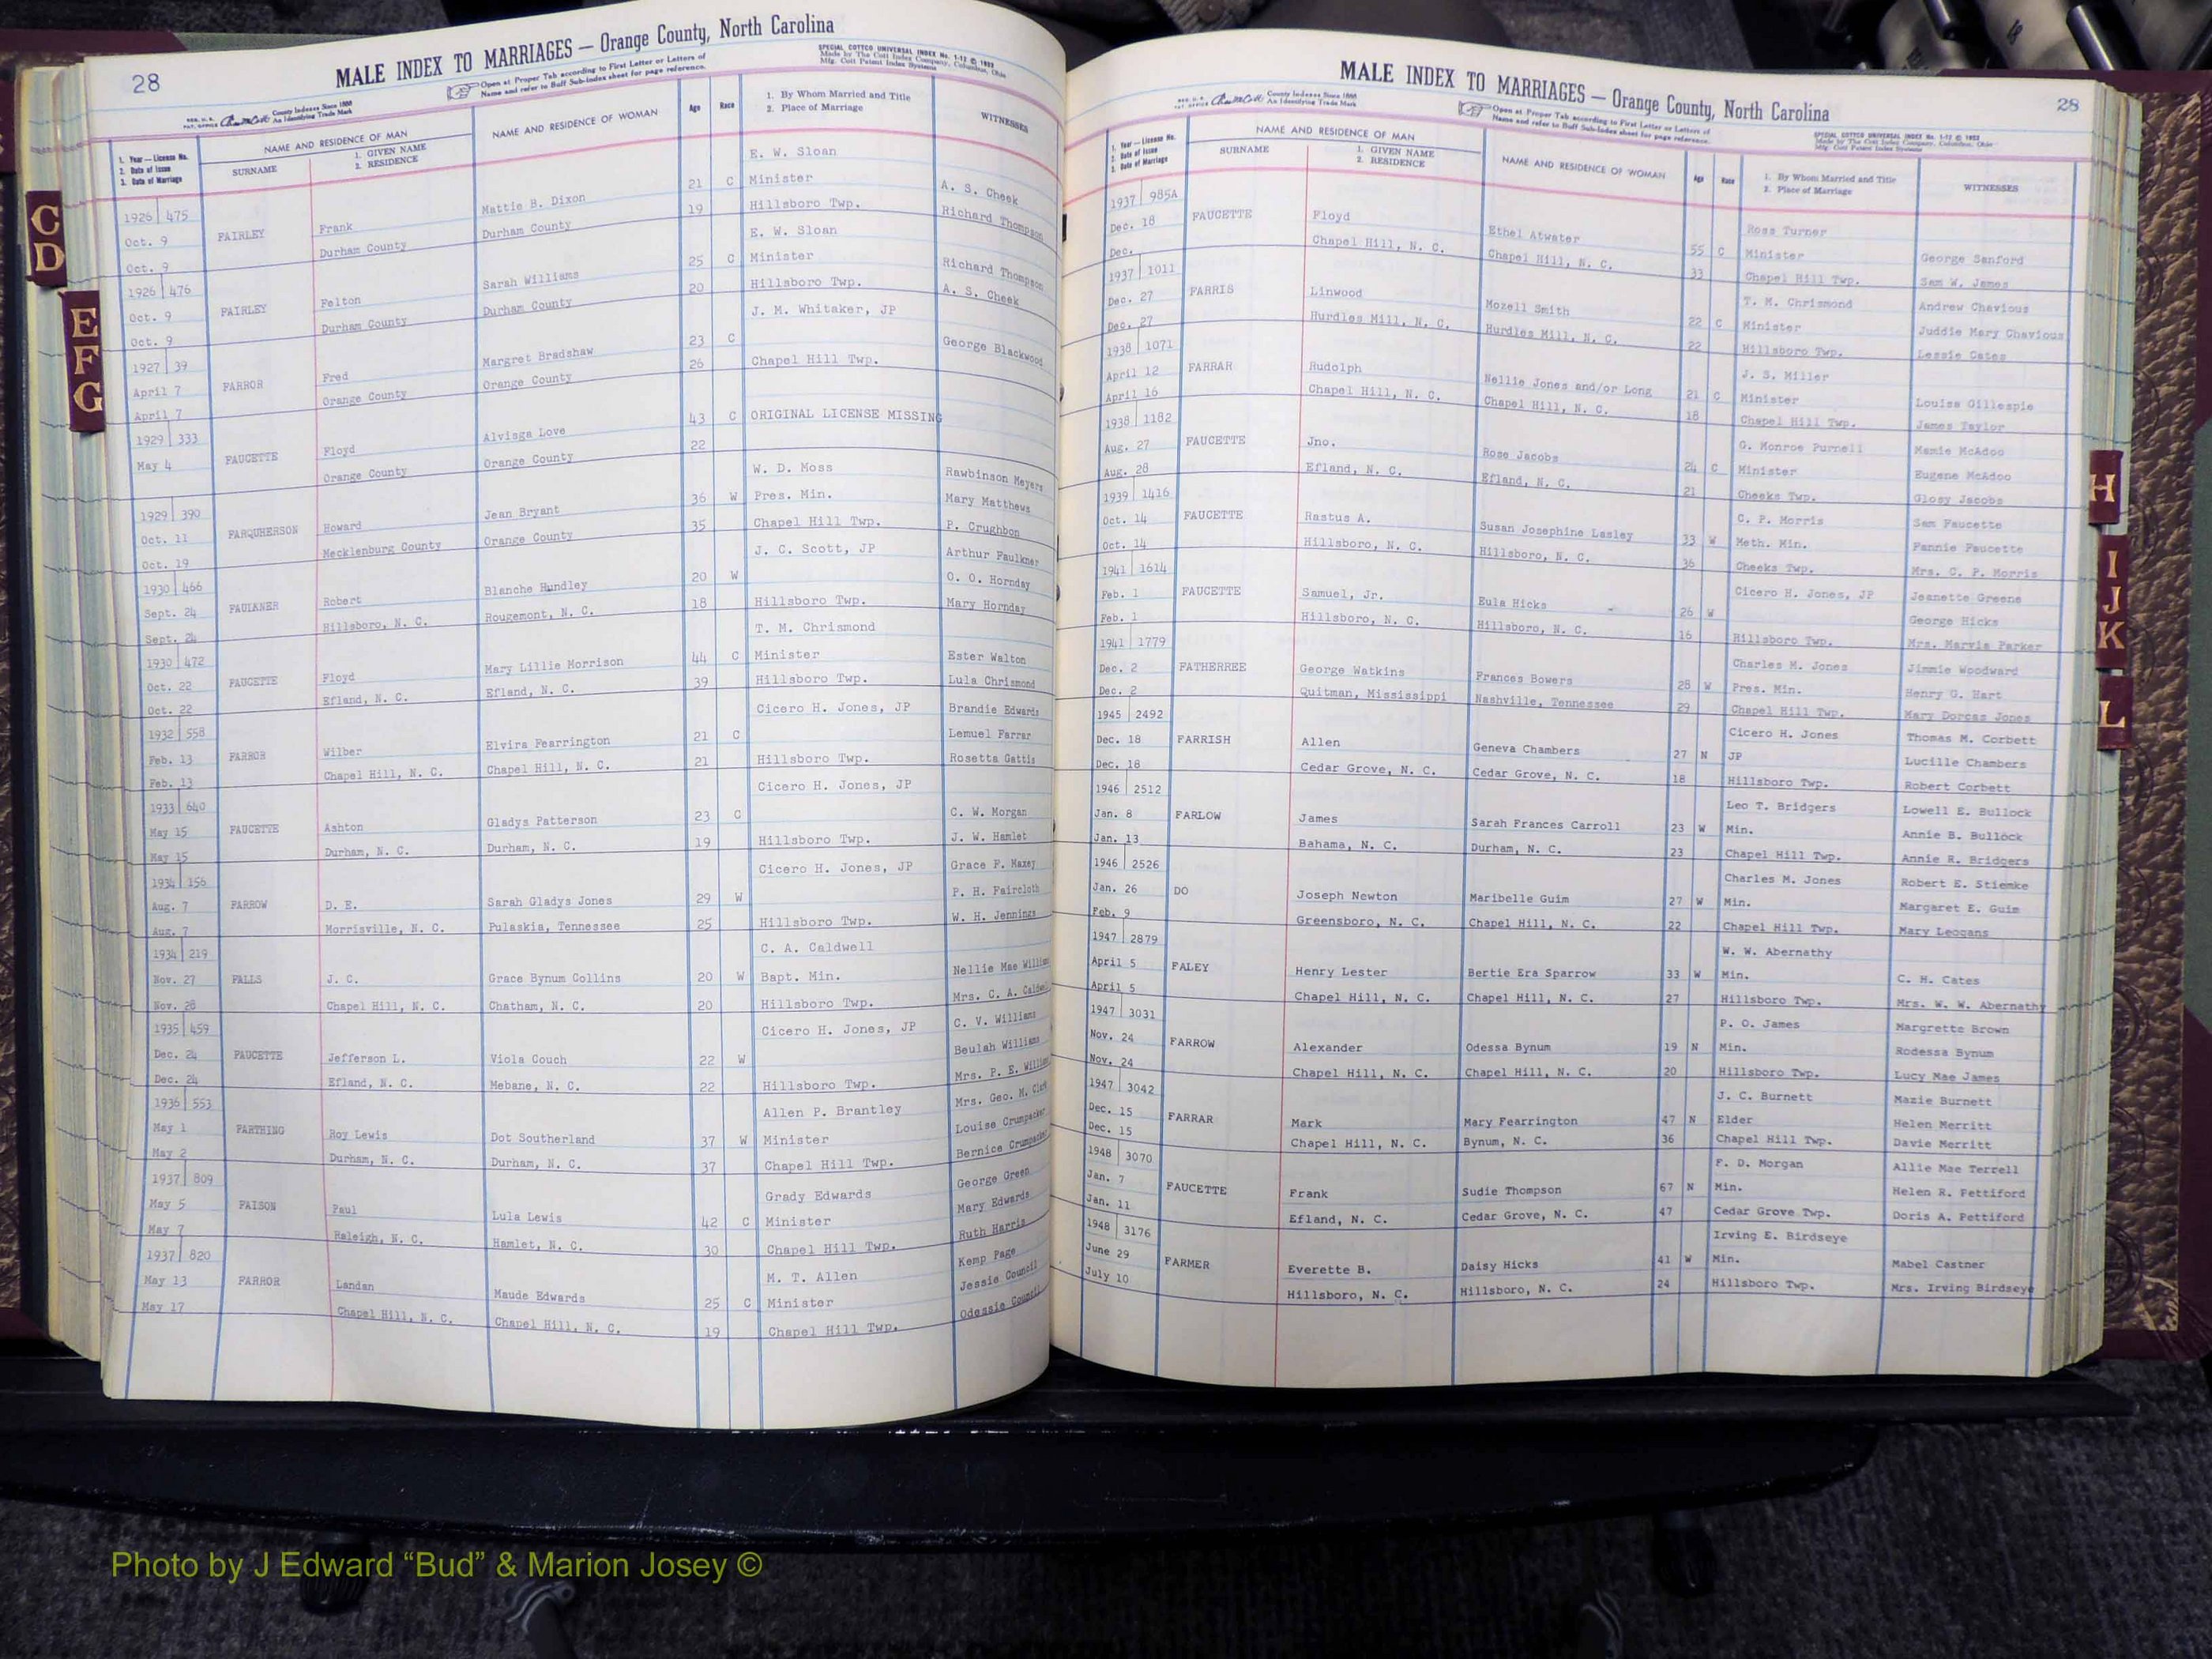 28
MALE INDEX TO MARRIAGES — Orange County, North Carolina
Open at Proper Tab according to First Letter or Letters of
Name and refer to Buff Sub-Index sheet for page reference.
SPECIAL COTTCO UNIVERSAL INDEX No. 1-12 © 1952
Made by The Cott Index Company, Columbus, Ohio
Mfg. Cott Patent Index Systems
County Indexes Since 1888
An Identifying Trade Mark
1. Year — License No.
2. Date of Issue
3. Date of Marriage
NAME AND RESIDENCE OF MAN
SURNAME
1. GIVEN NAME
2. RESIDENCE
NAME AND RESIDENCE OF WOMAN
Age
Race
1. By Whom Married and Title
2. Place of Marriage
WITNESSES
E. W. Sloan
1926 475 Mattie B. Dixon 21 C Minister A. S. Cheek
Oct. 9 FAIRLEY Frank Durham County 19 Hillsboro Twp. Richard Thompson
Oct. 9 Durham County
E. W. Sloan
1926 476 Sarah Williams 25 C Minister Richard Thompson
Oct. 9 FAIRLEY Felton Durham County 20 Hillsboro Twp. A. S. Cheek
Oct. 9 Durham County
J. M. Whitaker, JP
1927 39 Margret Bradshaw 23 C George Blackwood
April 7 FARROR Fred Orange County 26 Chapel Hill Twp.
April 7 Orange County
1929 333 Alvisga Love 43 C ORIGINAL LICENSE MISSING
May 4 FAUCETTE Floyd Orange County 22
Orange County
W. D. Moss Rawbinson Meyers
1929 390 Jean Bryant 36 W Pres. Min. Mary Matthews
Oct. 11 FARQUHERSON Howard Orange County 35 Chapel Hill Twp. P. Crughbon
Oct. 19 Mecklenburg County
J. C. Scott, JP Arthur Faulkner
1930 466 Blanche Hundley 20 W O. O. Hornday
Sept. 24 FAULKNER Robert Rougemont, N. C. 18 Hillsboro Twp. Mary Hornday
Sept. 24 Hillsboro, N. C.
T. M. Chrismond
1930 472 Mary Lillie Morrison 44 C Minister Ester Walton
Oct. 22 FAUCETTE Floyd Efland, N. C. 39 Hillsboro Twp. Lula Chrismond
Oct. 22 Efland, N. C.
Cicero H. Jones, JP Brandie Edwards
1932 558 Elvira Fearrington 21 C Lemuel Farrar
Feb. 13 FARROR Wilber Chapel Hill, N. C. 21 Hillsboro Twp. Rosetta Gattis
Feb. 13 Chapel Hill, N. C.
Cicero H. Jones, JP
1933 640 Gladys Patterson 23 C C. W. Morgan
May 15 FAUCETTE Ashton Durham, N. C. 19 Hillsboro Twp. J. W. Hamlet
May 15 Durham, N. C.
Cicero H. Jones, JP Grace F. Maxey
1934 156 P. H. Faircloth
Aug. 7 FARROW D. E. Sarah Gladys Jones 29 W
Aug. 7 Morrisville, N. C. Pulaskia, Tennessee 25 Hillsboro Twp. W. H. Jennings
1934 219 C. A. Caldwell
Nov. 27 FALLS J. C. Grace Bynum Collins 20 W Bapt. Min. Nellie Mae
Nov. 28 Chapel Hill, N. C. Chatham, N. C. 20 Hillsboro Twp. Mrs. C. A.
1935 459 Cicero H. Jones, JP C. V. Williams
Dec. 24 FAUCETTE Jefferson L. Viola Couch 22 W Beulah Williams
Dec. 24 Efland, N. C. Mebane, N. C. 22 Hillsboro Twp. Mrs. P. E.
1936 553 Allen P. Brantley Mrs. Geo. M. Clark
May 1 FARTHING Roy Lewis Dot Southerland 37 W Minister Louise Crumpacker
May 2 Durham, N. C. Durham, N. C. 37 Chapel Hill Twp. Bernice Crumpacker
1937 809 Grady Edwards George Green
May 5 FAISON Paul Lula Lewis 42 C Minister Mary Edwards
May 7 Raleigh, N. C. Hamlet, N. C. 30 Chapel Hill Twp. Ruth Harris
1937 820 M. T. Allen Kemp Page
May 13 FARROR Landan Maude Edwards 25 C Minister Jessie Council
May 17 Chapel Hill, N. C. Chapel Hill, N. C. 19 Chapel Hill Twp. Odessie Council
MALE INDEX TO MARRIAGES — Orange County, North Carolina
28
County Indexes Since 1888
An Identifying Trade Mark
Open at Proper Tab according to First Letter or Letters of
Name and refer to Buff Sub-Index sheet for page reference.
SPECIAL COTTCO UNIVERSAL INDEX No. 1-12 © 1952
Made by The Cott Index Company, Columbus, Ohio
Mfg. Cott Patent Index Systems
1. Year — License No.
2. Date of Issue
3. Date of Marriage
NAME AND RESIDENCE OF MAN
SURNAME
1. GIVEN NAME
2. RESIDENCE
NAME AND RESIDENCE OF WOMAN
Age
Race
1. By Whom Married and Title
2. Place of Marriage
WITNESSES
1937 985A Ross Turner
Dec. 18 FAUCETTE Floyd Ethel Atwater 55 C Minister George Sanford
Dec. Chapel Hill, N. C. Chapel Hill, N. C. 33 Chapel Hill Twp. Sam W. James
1937 1011 T. M. Chrismond Andrew Chavious
Dec. 27 FARRIS Linwood Mozell Smith 22 C Minister Juddie Mary Chavious
Dec. 27 Hurdles Mill, N. C. Hurdles Mill, N. C. 22 Hillsboro Twp. Lessie Cates
1938 1071 J. S. Miller
April 12 FARRAR Rudolph Nellie Jones and/or Long 21 C Minister Louise Gillespie
April 16 Chapel Hill, N. C. Chapel Hill, N. C. 18 Chapel Hill Twp. James Taylor
1938 1182 G. Monroe Purnell Mamie McAdoo
Aug. 27 FAUCETTE Jno. Rose Jacobs 24 C Minister Eugene McAdoo
Aug. 28 Efland, N. C. Efland, N. C. 21 Cheeks Twp. Glosy Jacobs
1939 1416 C. P. Morris Sam Faucette
Oct. 14 FAUCETTE Rastus A. Susan Josephine Lasley 33 W Meth. Min. Fannie Faucette
Oct. 14 Hillsboro, N. C. Hillsboro, N. C. 36 Cheeks Twp. Mrs. C. P. Morris
1941 1614 Cicero H. Jones, JP Jeanette Greene
Feb. 1 FAUCETTE Samuel, Jr. Eula Hicks 26 W George Hicks
Feb. 1 Hillsboro, N. C. Hillsboro, N. C. 16 Hillsboro Twp. Mrs. Marvis Parker
1941 1779 Charles M. Jones Jimmie Woodward
Dec. 2 FATHERREE George Watkins Frances Bowers 28 W Pres. Min. Henry G. Hart
Dec. 2 Quitman, Mississippi Nashville, Tennessee 29 Chapel Hill Twp. Mary Dorcas Jones
1945 2492 Cicero H. Jones Thomas M. Corbett
Dec. 18 FARRISH Allen Geneva Chambers 27 N JP Lucille Chambers
Dec. 18 Cedar Grove, N. C. Cedar Grove, N. C. 18 Hillsboro Twp. Robert Corbett
1946 2512 Leo T. Bridgers Lowell E. Bullock
Jan. 8 FARLOW James Sarah Frances Carroll 23 W Min. Annie B. Bullock
Jan. 13 Bahama, N. C. Durham, N. C. 23 Chapel Hill Twp. Annie R. Bridgers
1946 2526 Charles M. Jones Robert E. Stiemke
Jan. 26 DO Joseph Newton Maribelle Guim 27 W Min. Margaret E. Guim
Feb. 9 Greensboro, N. C. Chapel Hill, N. C. 22 Chapel Hill Twp. Mary Leogans
1947 2879 W. W. Abernathy
April 5 FALEY Henry Lester Bertie Era Sparrow 33 W Min. C. H. Cates
April 5 Chapel Hill, N. C. Chapel Hill, N. C. 27 Hillsboro Twp. Mrs. W. W. Abernathy
1947 3031 P. O. James Margrette Brown
Nov. 24 FARROW Alexander Odessa Bynum 19 N Min. Rodessa Bynum
Nov. 24 Chapel Hill, N. C. Chapel Hill, N. C. 20 Hillsboro Twp. Lucy Mae James
1947 3042 J. C. Burnett Mazie Burnett
Dec. 15 FARRAR Mark Mary Fearrington 47 N Elder Helen Merritt
Dec. 15 Chapel Hill, N. C. Bynum, N. C. 36 Chapel Hill Twp. Davie Merritt
1948 3070 F. D. Morgan Allie Mae Terrell
Jan. 7 FAUCETTE Frank Sudie Thompson 67 N Min. Helen R. Pettiford
Jan. 11 Efland, N. C. Cedar Grove, N. C. 47 Cedar Grove Twp. Doris A. Pettiford
1948 3176 Irving E. Birdseye
June 29 FARMER Everette B. Daisy Hicks 41 W Min. Mabel Castner
July 10 Hillsboro, N. C. Hillsboro, N. C. 24 Hillsboro Twp. Mrs. Irving Birdseye
C
D
E
F
G
H
I
J
K
L
Photo by J Edward “Bud” & Marion Josey ©